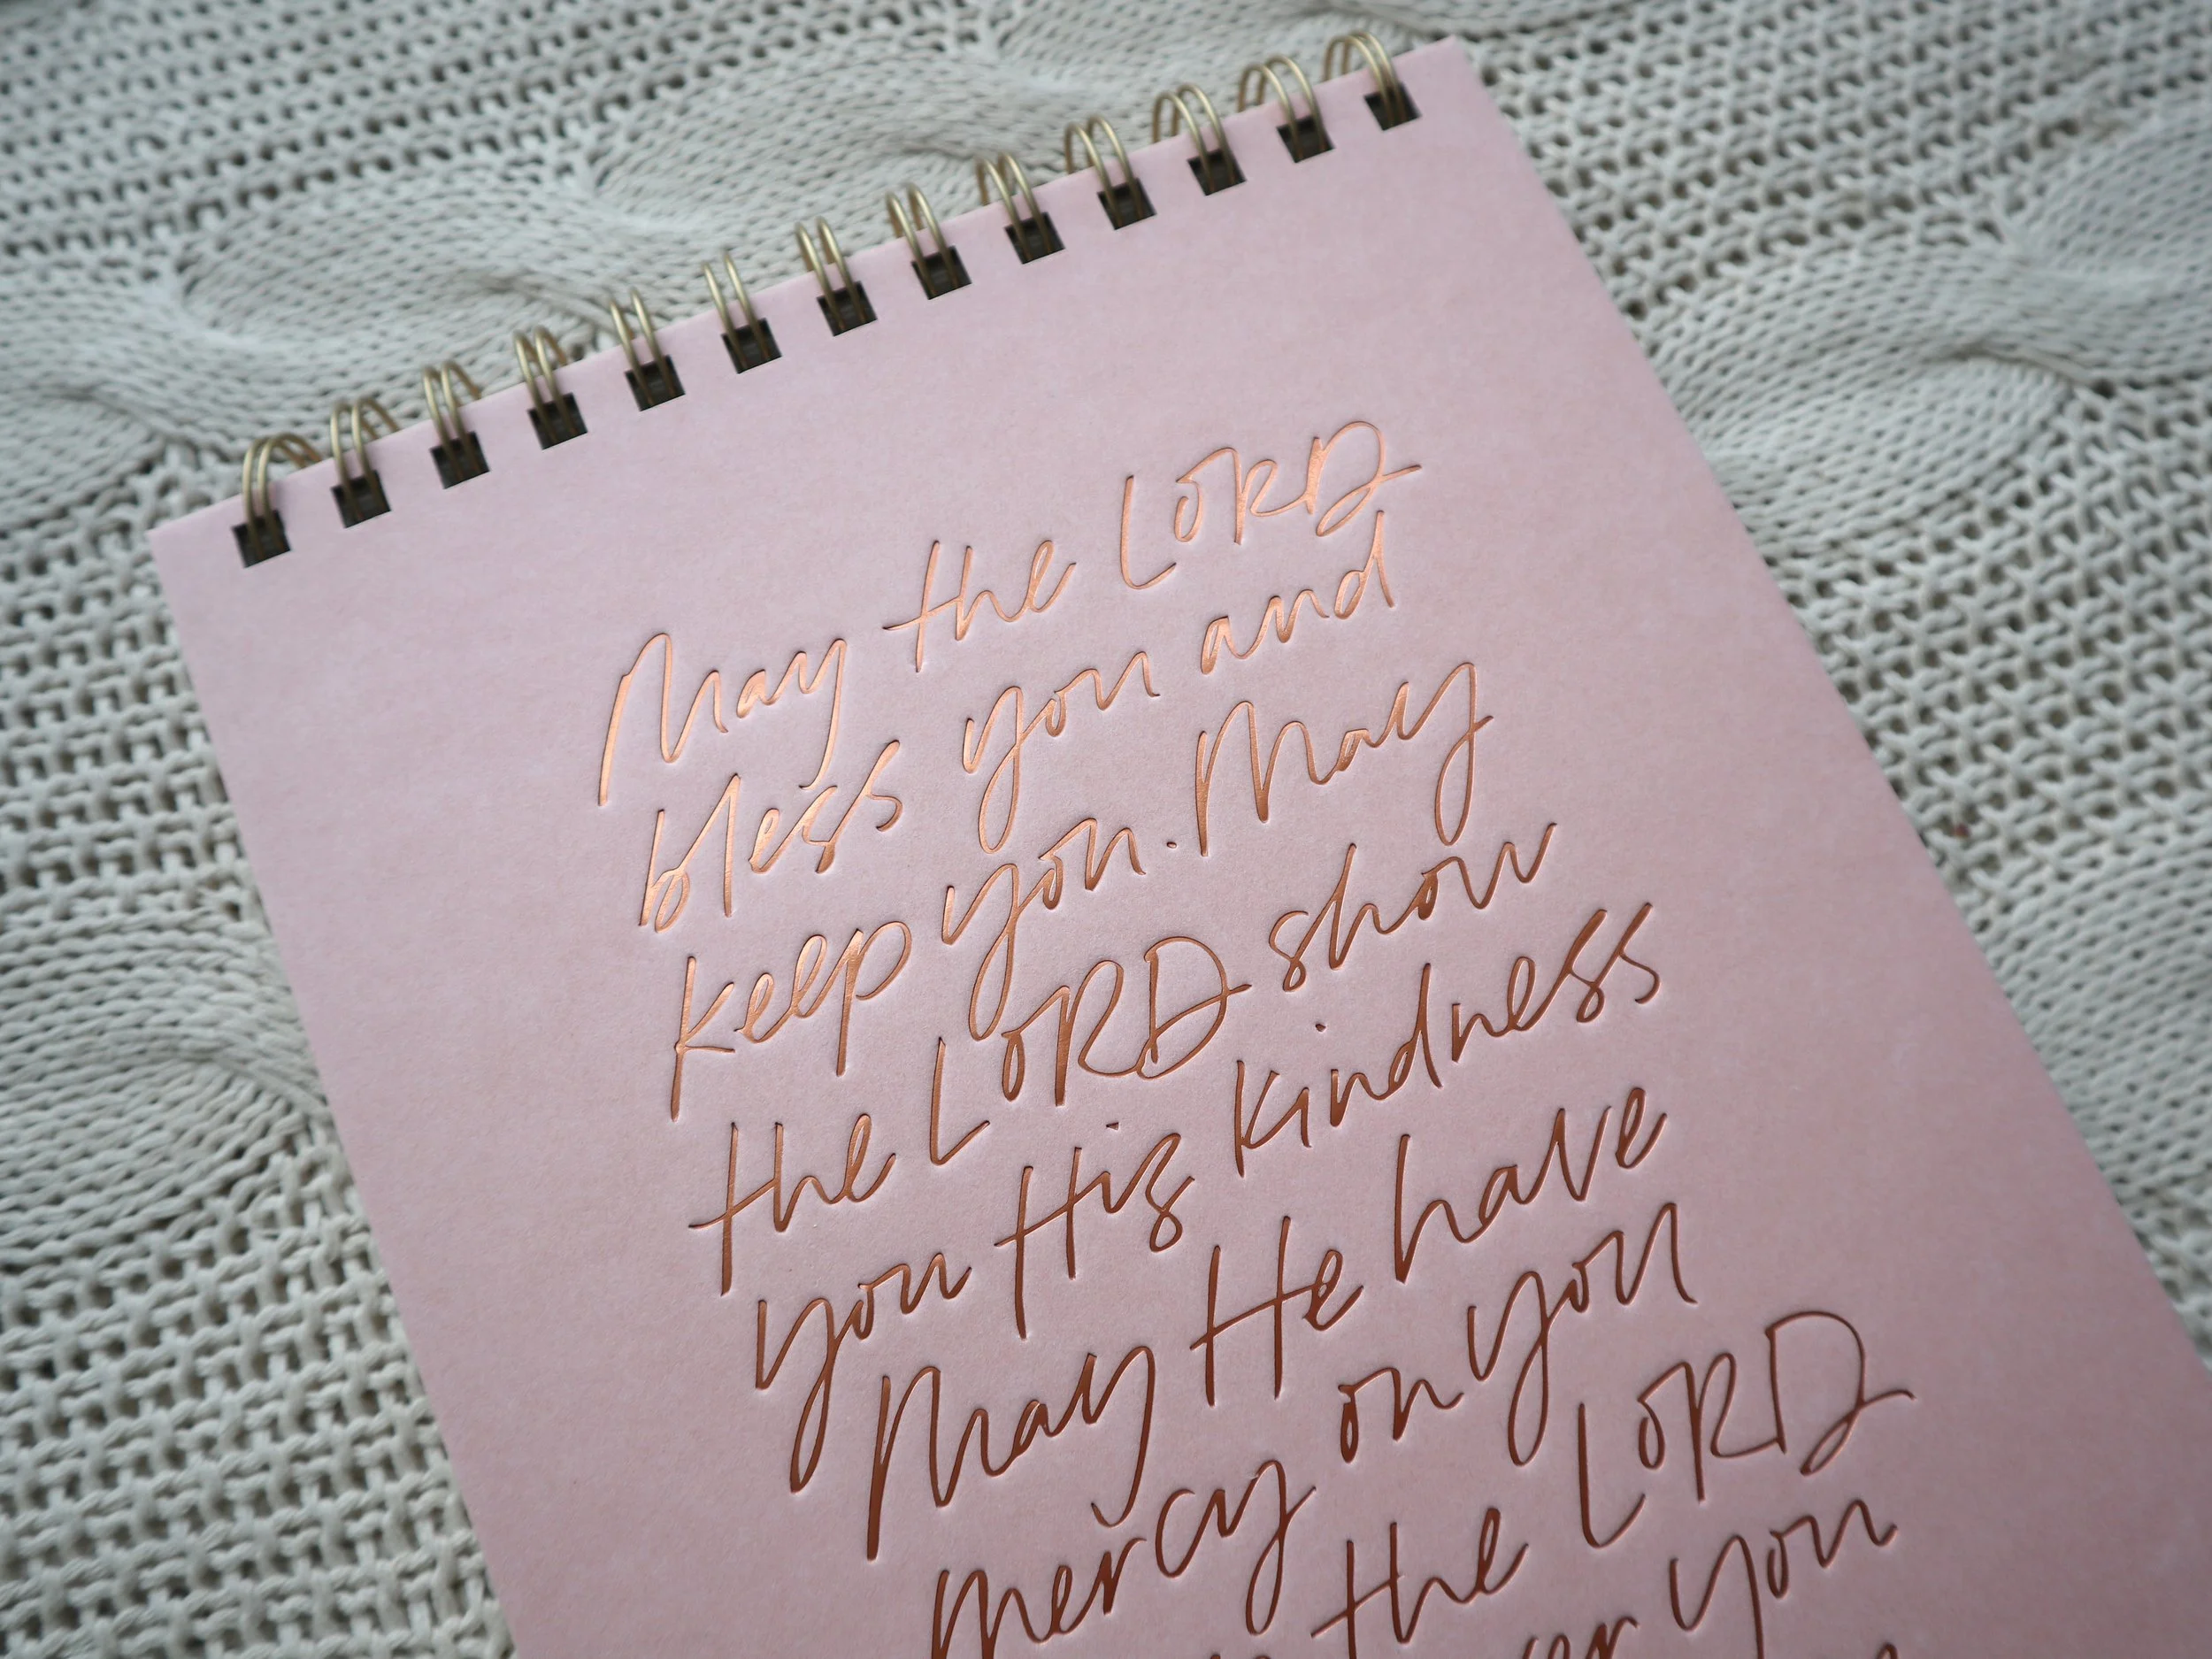 May the LORD
bless you and
keep you. May
the LORD show
you His kindness
May He have
mercy on you
the LORD
you